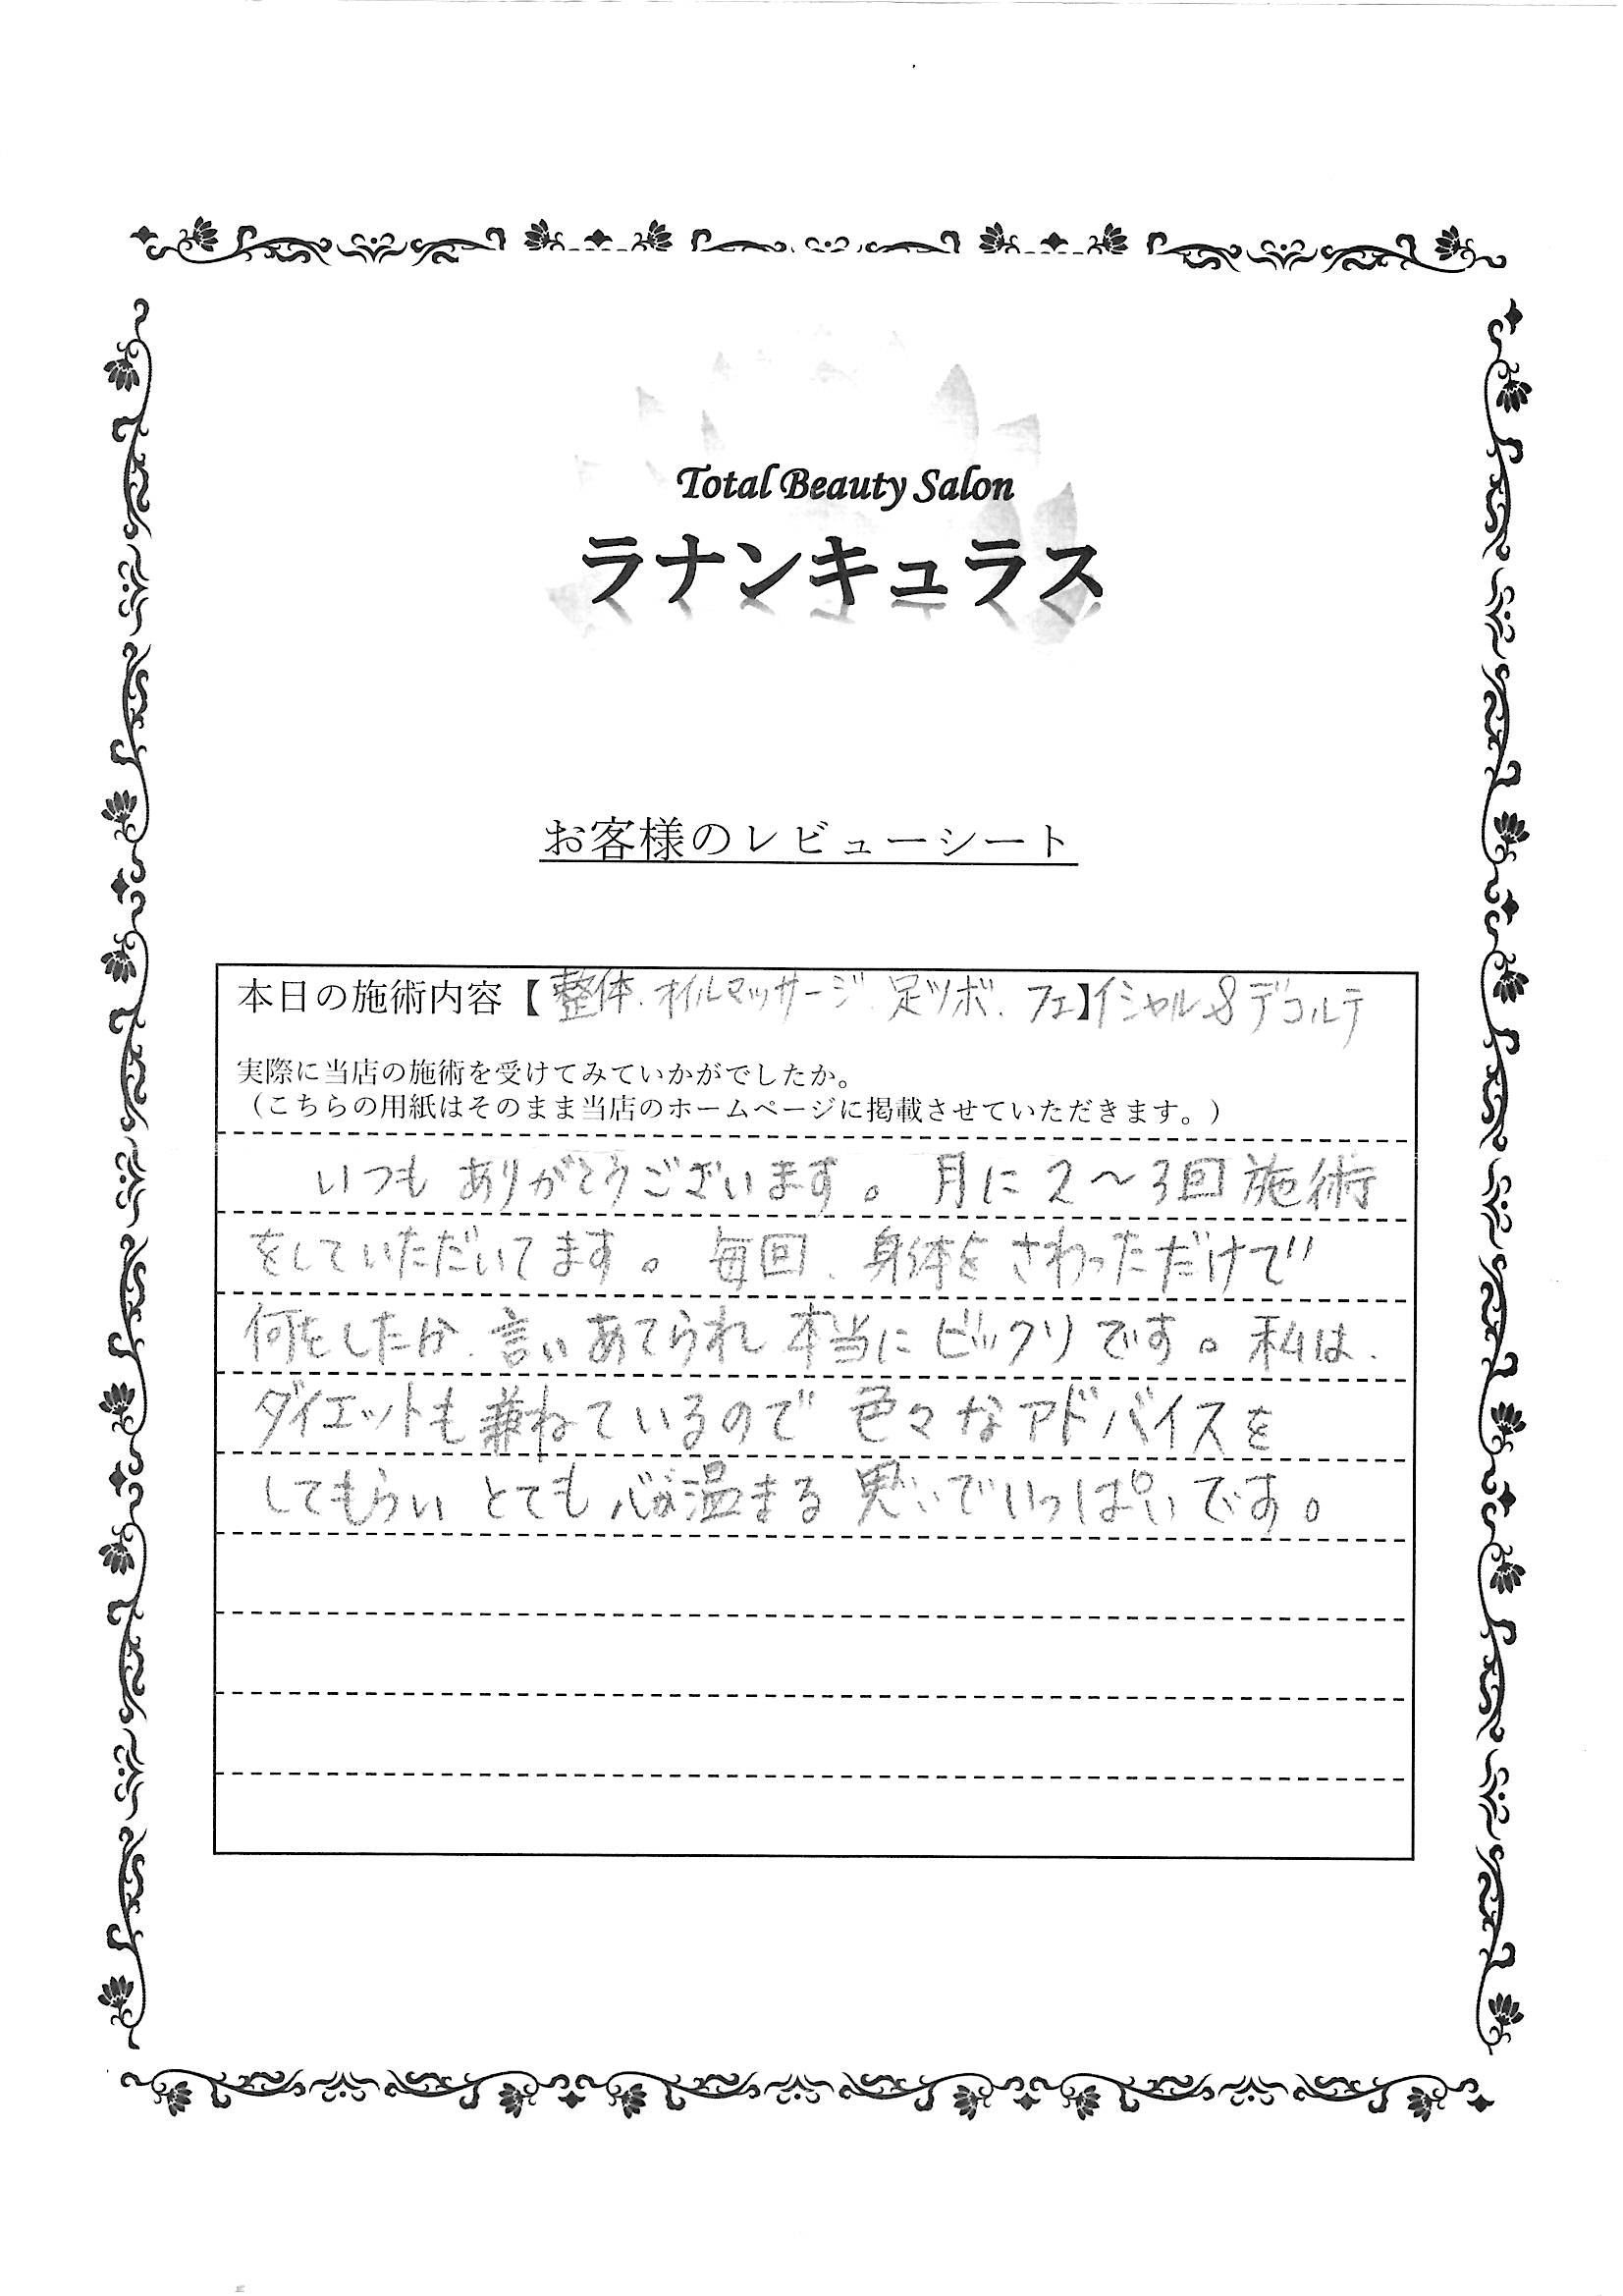 Total Beauty Salon
ラナンキュラス
お客様のレビューシート
本日の施術内容【整体、オイルマッサージ、足ツボ、フェ】イシャル&デコルテ
実際に当店の施術を受けてみていかがでしたか。
（こちらの用紙はそのまま当店のホームページに掲載させていただきます。）
いつもありがとうございます。月に2〜3回施術
をしていただいてます。毎回、身体をさわっただけで
何をしたか、言いあてられ本当にビックリです。私は、
ダイエットも兼ねているので色々なアドバイスを
してもらいとても心が温まる思いでいっぱいです。